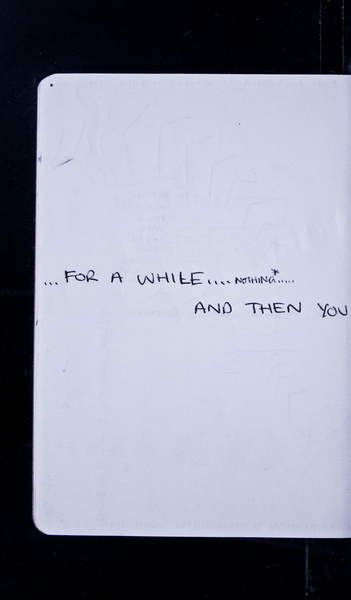 ... FOR A WHILE.... NOTHING*.....
AND THEN YOU